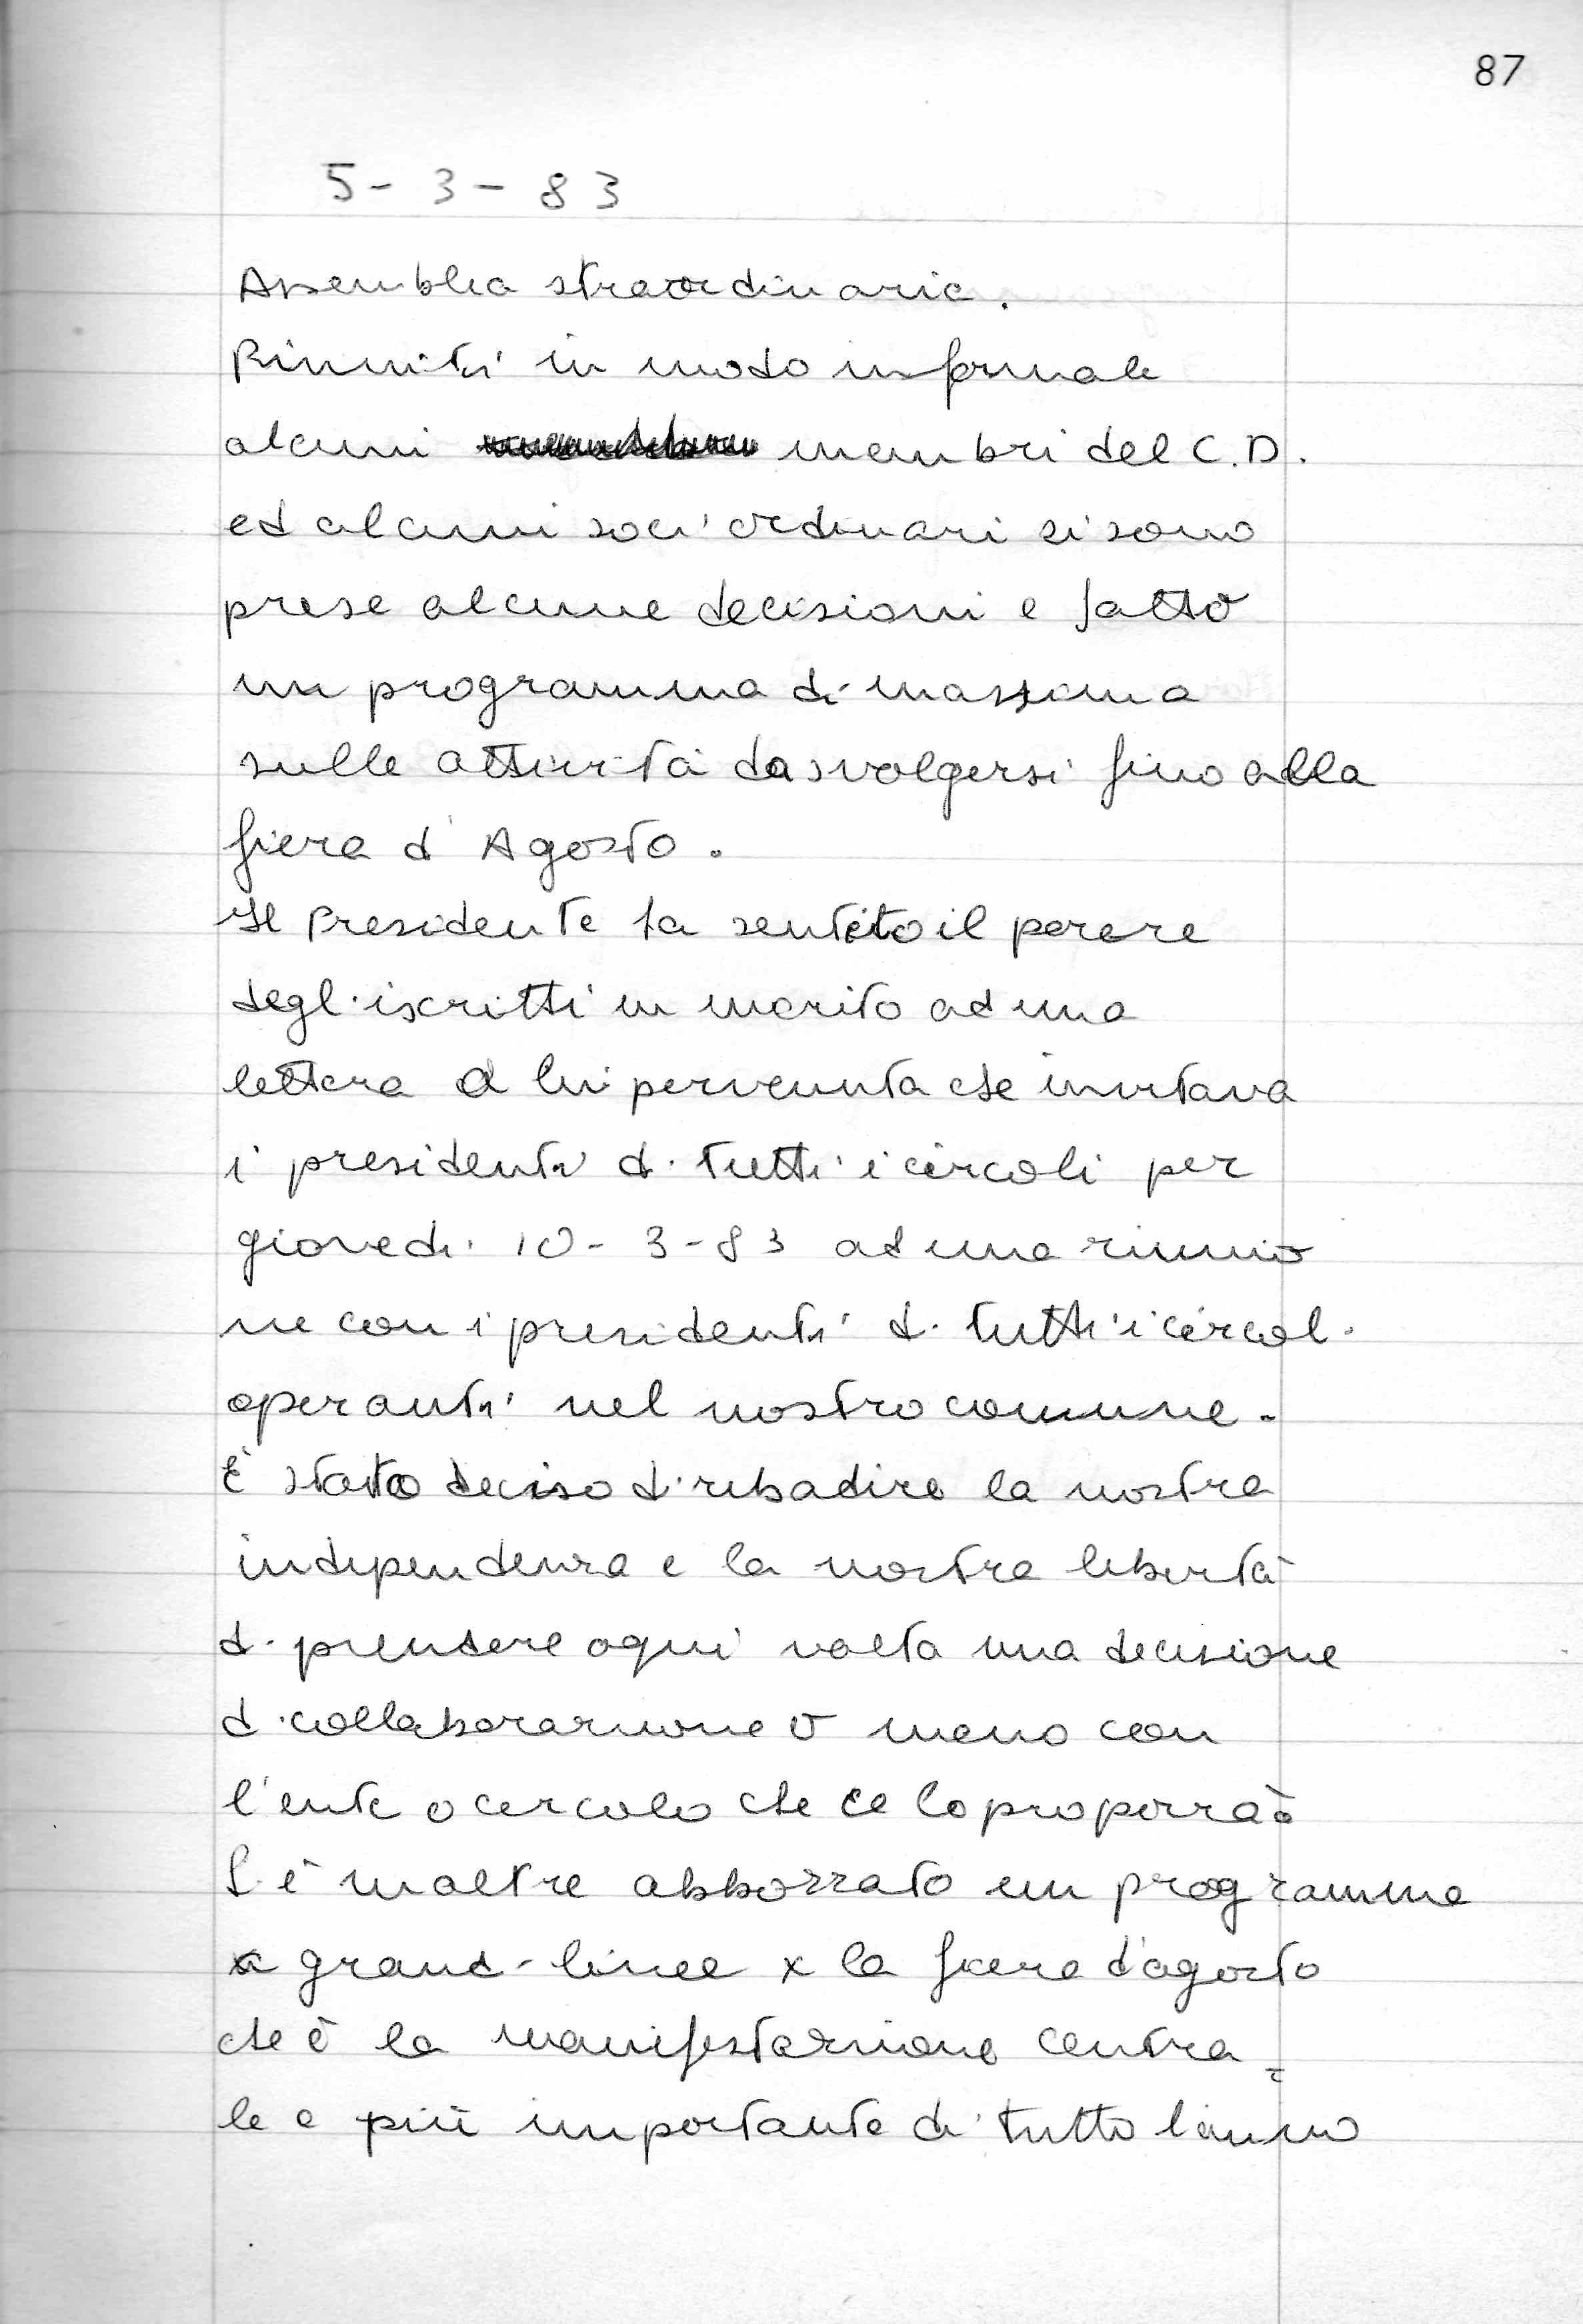 87
5-3-83
Assemblea straordinaria.
Riuniti in modo informale
alcuni membri del C.D.
ed alcuni soci ordinari si sono
prese alcune decisioni e fatto
un programma di massima
sulle attività da svolgersi fino alla
fiera d'Agosto.
Il Presidente ha sentito il parere
degli iscritti in merito ad una
lettera a lui pervenuta che invitava
i presidenti di tutti i circoli per
giovedì 10-3-83 ad una riunio
ne con i presidenti di tutti i circoli
operanti nel nostro comune.
È stato deciso di ribadire la nostra
indipendenza e la nostra libertà
di prendere ogni volta una decisione
di collaborazione o meno con
l'ente o circolo che ce lo proporrà.
Si è inoltre abbozzato un programma
a grandi linee x la fiera d'agosto
che è la manifestazione centra=
le e più importante di tutto l'anno